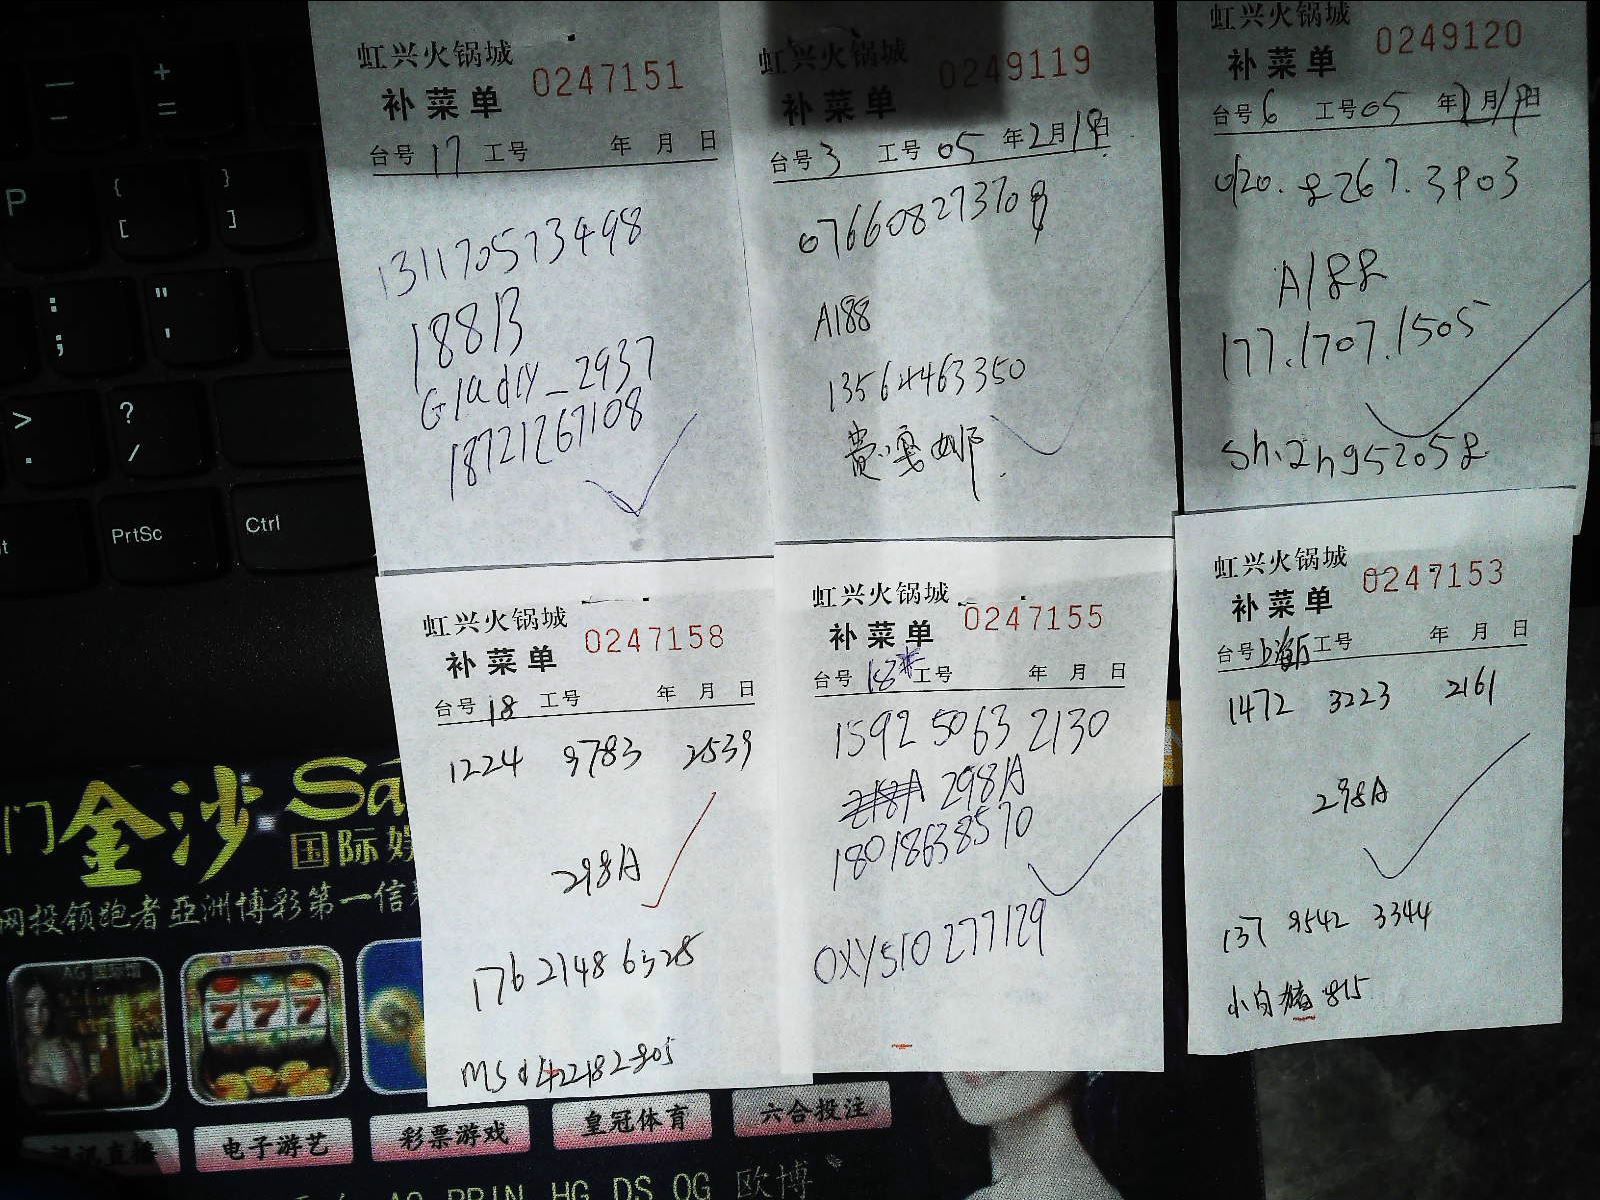 虹兴火锅城
补菜单 0247151
台号 17 工号 年 月 日
131170573498
188B
18721267108
虹兴火锅城
补菜单 0249119
台号 3 工号 05 年 2月 19日
A188
13564463350
虹兴火锅城
补菜单 0249120
台号 6 工号 05 年 2月 19日
020.8267.3903
A188
177.1707.1505
虹兴火锅城
补菜单 0247158
台号 18 工号 年 月 日
1224 9783 2539
298A
176 2148 6328
虹兴火锅城
补菜单 0247155
台号 18# 工号 年 月 日
1592 5063 2130
298A
18018638570
OXY510277129
虹兴火锅城
补菜单 0247153
台号 工号 年 月 日
1472 3223 2161
298A
137 9542 3344
小白猪815
P { [ } ]
: ; " '
> . ? /
PrtSc Ctrl
门金沙 Sa
国际娱
网投领跑者亞洲博彩第一信
AG 国际馆
777
电子游艺 彩票游戏 皇冠体育 六合投注
HG DS OG 欧博